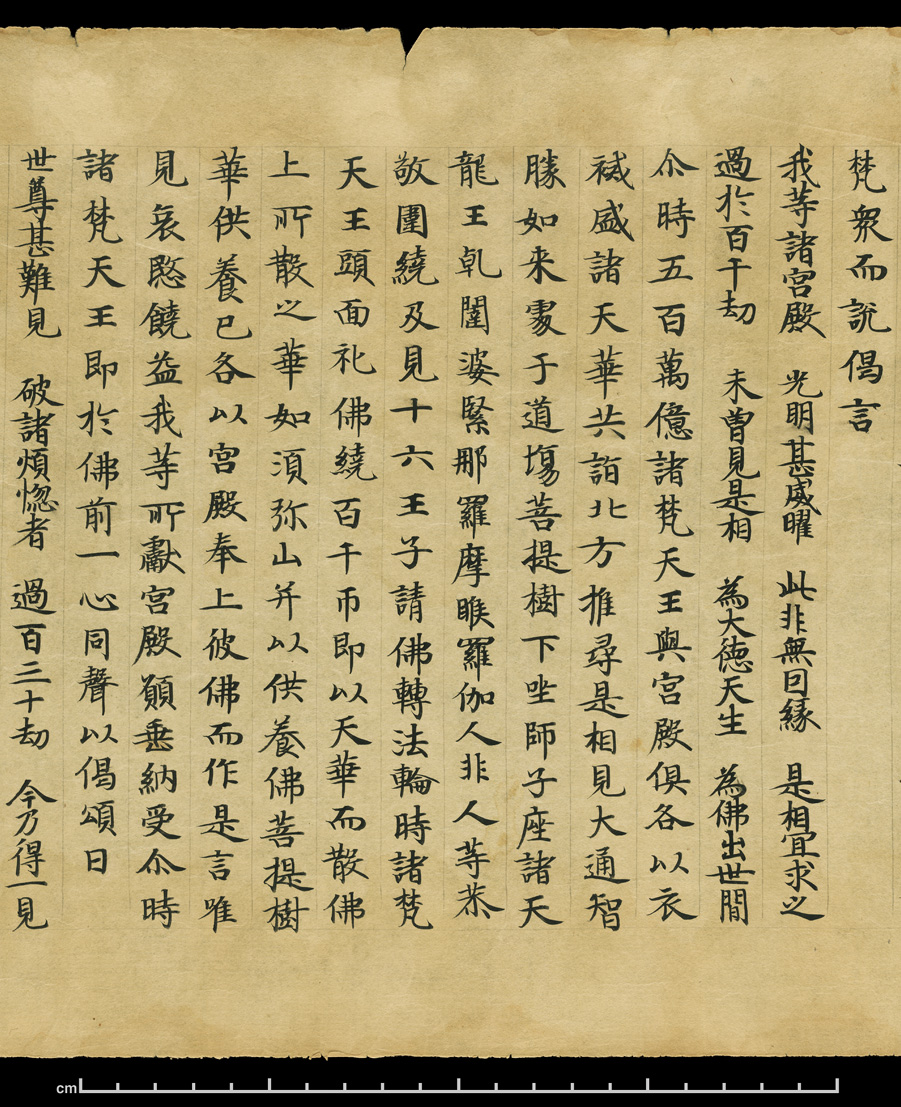 梵衆而說偈言
我等諸宮殿　光明甚威曜　此非無因緣　是相宜求之
過於百千劫　未曾見是相　為大德天生　為佛出世間
尒時五百萬億諸梵天王與宮殿俱各以衣
祴盛諸天華共詣北方推尋是相見大通智
勝如来處于道場菩提樹下坐師子座諸天
龍王乹闥婆緊那羅摩睺羅伽人非人等恭
敬圍繞及見十六王子請佛轉法輪時諸梵
天王頭面礼佛繞百千帀即以天華而散佛
上所散之華如湏弥山并以供養佛菩提樹
華供養已各以宮殿奉上彼佛而作是言唯
見哀愍饒益我等所獻宮殿願垂納受尒時
諸梵天王即於佛前一心同聲以偈頌曰
世尊甚難見　破諸煩惚者　過百三十劫　今乃得一見